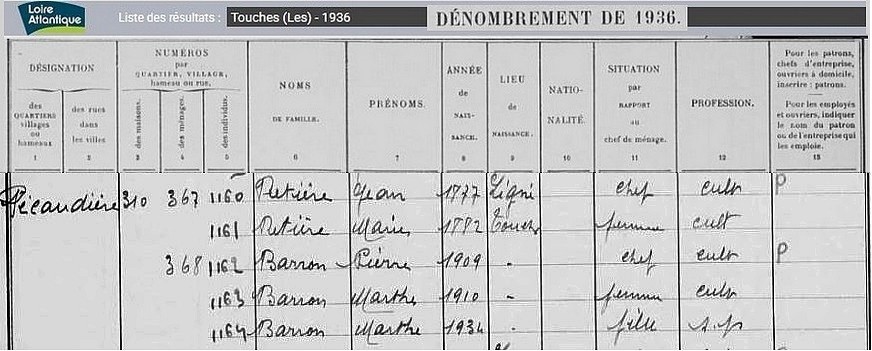 Loire
Atlantique
Liste des résultats : Touches (Les) - 1936
DÉNOMBREMENT DE 1936.
DÉSIGNATION
des QUARTIERS villages ou hameaux
1
des rues dans les villes
2
NUMÉROS
par QUARTIER, VILLAGE, hameau ou rue.
des maisons.
3
des ménages.
4
des individus.
5
NOMS
DE FAMILLE.
6
PRÉNOMS.
7
ANNÉE
de
NAIS-
SANCE.
8
LIEU
de
NAISSANCE.
9
NATIO-
NALITÉ.
10
SITUATION
par
RAPPORT
au
chef de ménage.
11
PROFESSION.
12
Pour les patrons,
chefs d'entreprise,
ouvriers à domicile,
inscrire : patrons.
Pour les employés
et ouvriers, indiquer
le nom du patron
ou de l'entreprise qui
les emploie.
13
Pécaudière 310 367 1160 Retière Jean 1877 Ligné chef cult P
1161 Retière Marie 1882 Touches femme cult
368 1162 Barron Pierre 1909 - chef cult P
1163 Barron Marthe 1910 - femme cult
1164 Barron Marthe 1934 - fille s.p